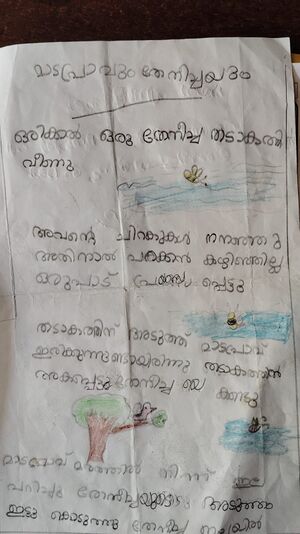 മാടപ്രാവും തേനീച്ചയും
ഒരിക്കൽ ഒരു തേനീച്ച തടാകത്തിൽ
വീണു
അവൻ്റെ ചിറകുകൾ നനഞ്ഞു
അതിനാൽ പറക്കാൻ കഴിഞ്ഞില്ല
ഒരുപാട് പ്പെട്ടു
തടാകത്തിന് അടുത്ത് മാടപ്രാവ്
ഇരിക്കുന്നുണ്ടായിരുന്നു തടാകത്തിൽ
അകപ്പെട്ട തേനീച്ച യെ കണ്ടു
മാടപ്രാവ് മരത്തിൽ നിന്ന് ഇല
പറിച്ചു തേനീച്ചയുടെ അടുത്ത
ഇട്ടു കൊടുത്തു തേനീച്ച ഇലയിൽ